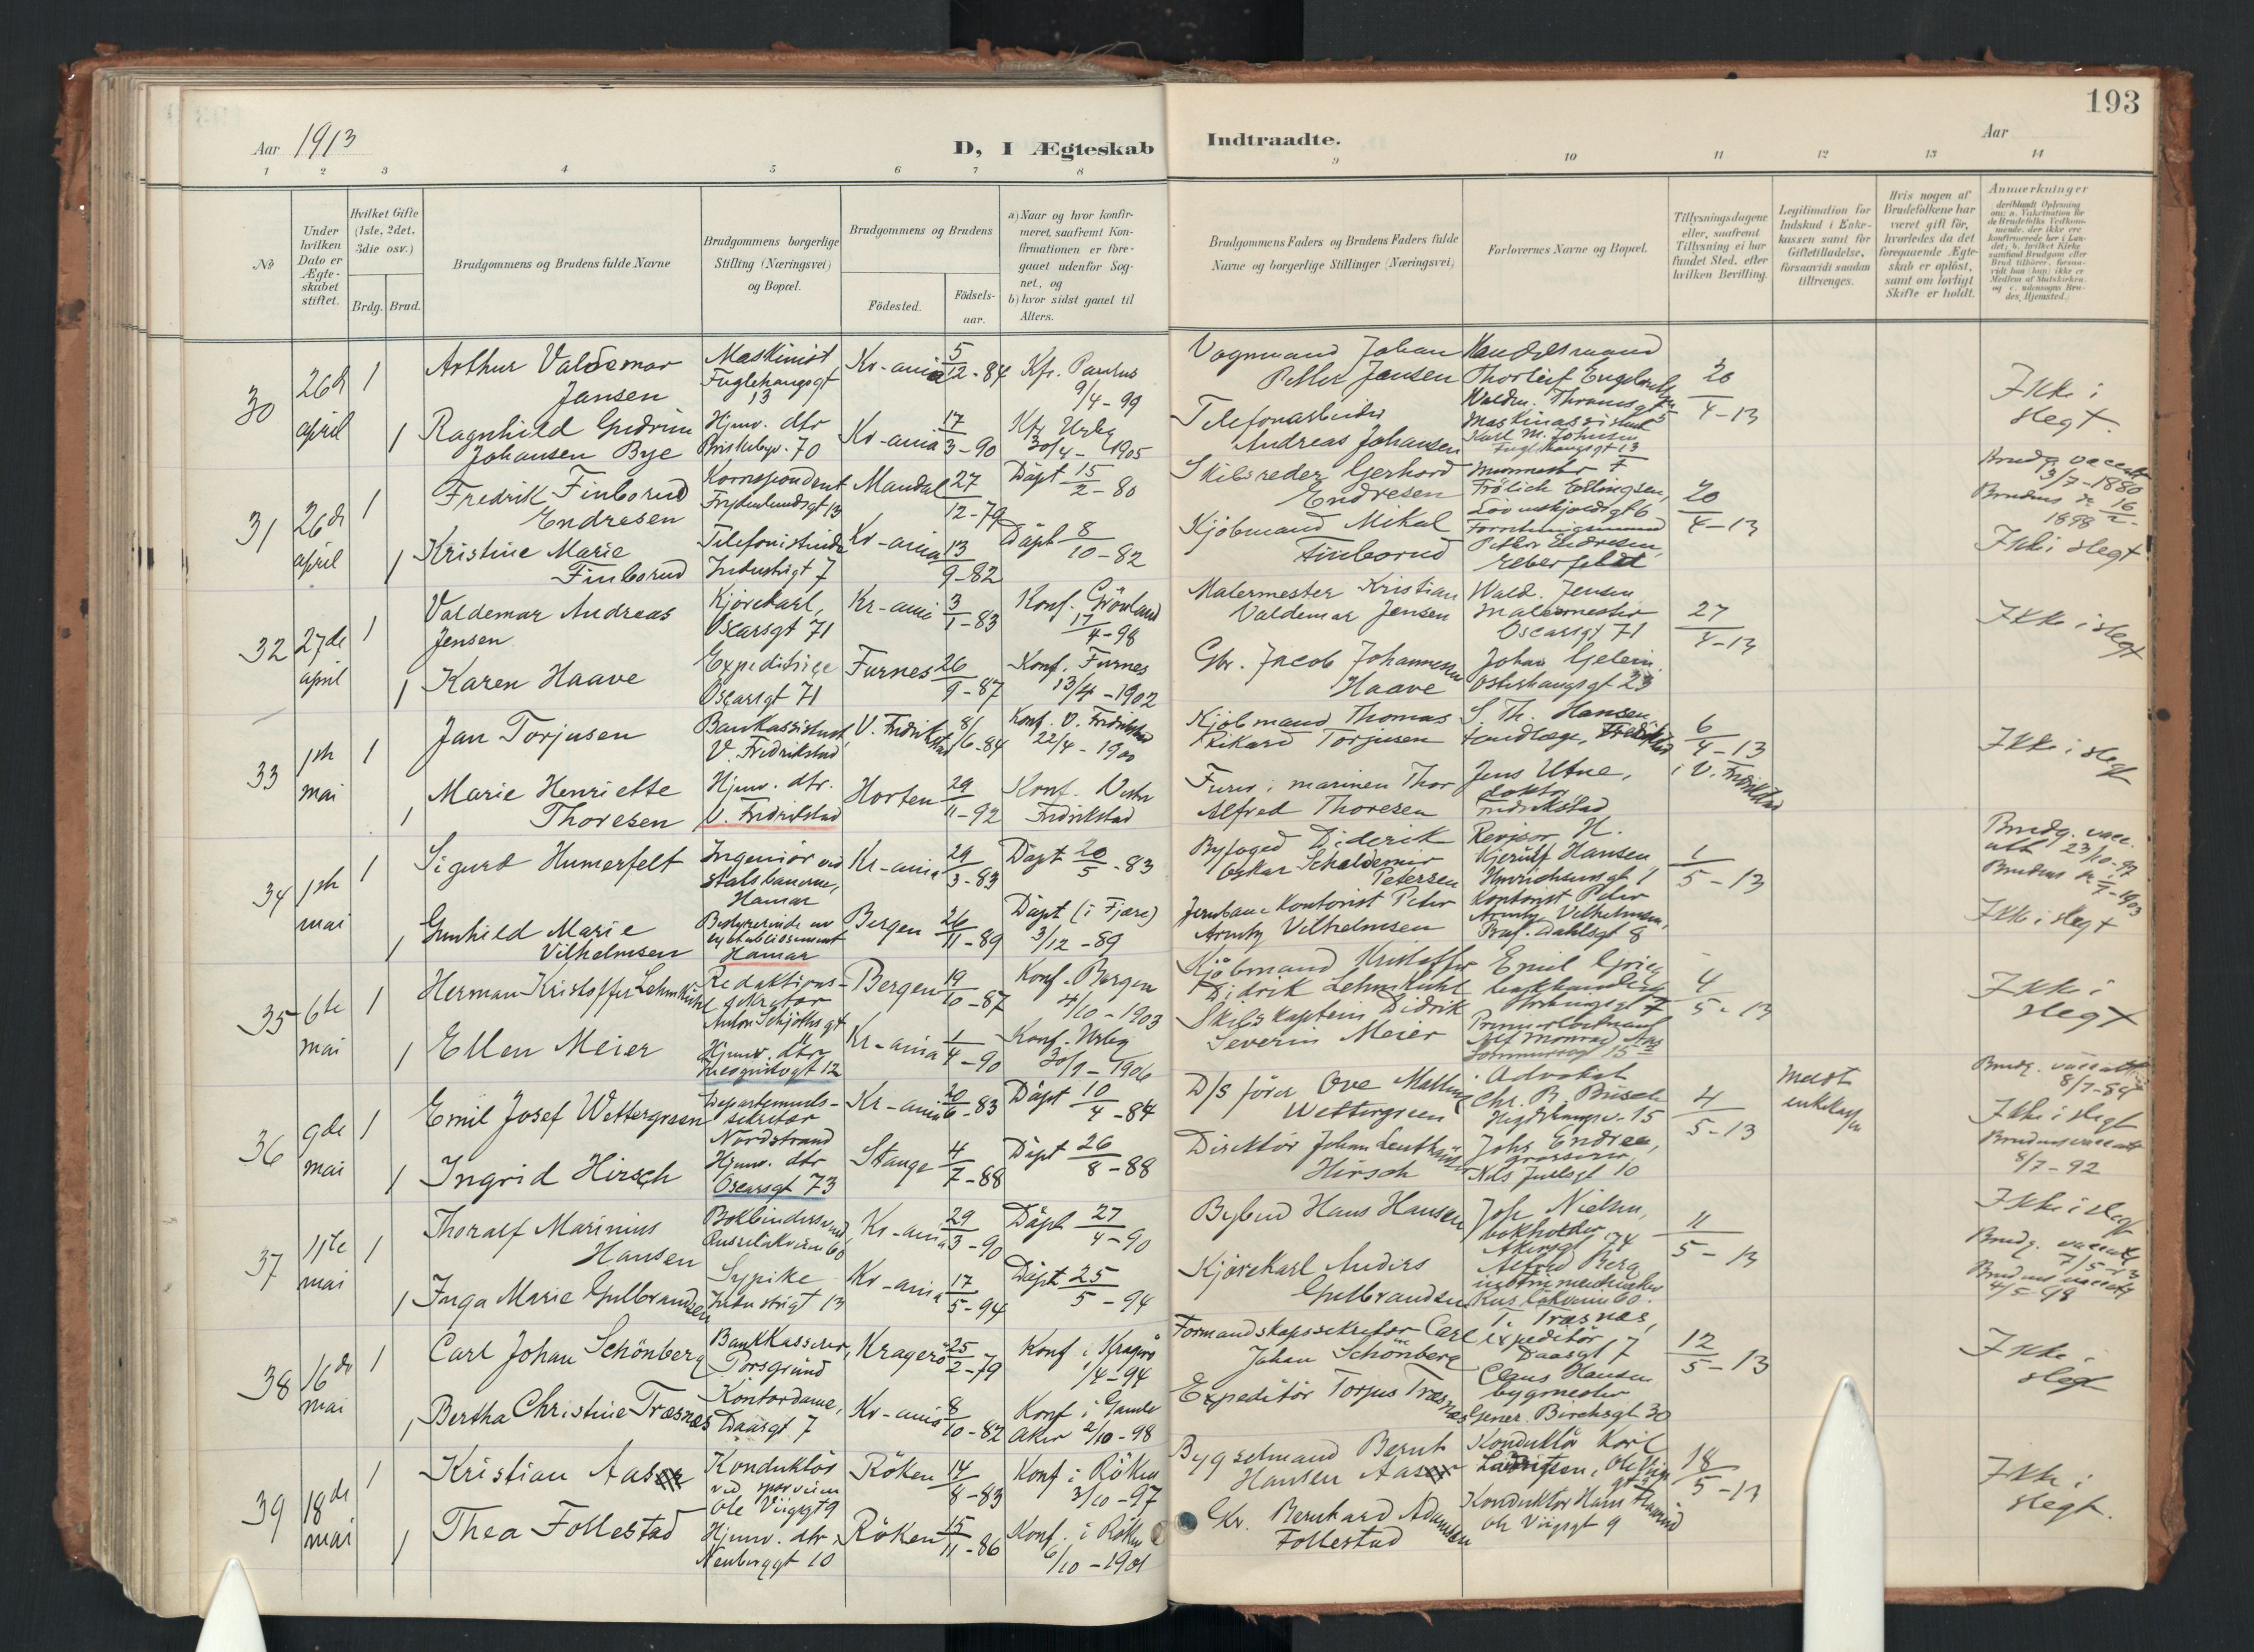 193
Aar 1913
D, I Ægteskab
Indtraadte.
Aar
1 2 3 4 5 6 7 8 9 10 11 12 13 14
№
Under hvilken Dato er Ægteskabet stiftet.
Hvilket Gifte (1ste, 2det, 3die osv.)
Brdg. Brud.
Brudgommens og Brudens fulde Navne
Brudgommens borgerlige Stilling (Næringsvei) og Bopæl.
Brudgommens og Brudens
Födested.
Födsels-aar.
a) Naar og hvor konfir-
meret, saafremt Kon-
firmationen er fore-
gaaet udenfor Sog-
net, og
b) hvor sidst gaaet til
Alters.
Brudgommens Faders og Brudens Faders fulde
Navne og borgerlige Stillinger (Næringsvei)
Forlovernes Navne og Bopæl.
Tillysningsdagene
eller, saafremt
Tillysning ei har
fundet Sted, efter
hvilken Bevilling.
Legitimation for
Indskud i Enke-
kassen samt for
Giftetilladelse,
forsaavidt saadan
tiltrænges.
Hvis nogen af
Brudefolkene har
været gift før,
hvorledes da det
foregaaende Ægte-
skab er oplöst,
samt om lovligt
Skifte er holdt.
Anmærkninger
(deriblandt Oplysning
om: a. Vakcination for
de Brudefolks Vedkom-
mende, der ikke ere
konfirmerede her i Lan-
det; b. hvilket Kirke-
samfund Brudgom eller
Brud tilhörer, forsaa-
vidt han (hun) ikke er
Medlem af Statskirken,
og c. udensogns Bru-
des Hjemsted.)
30
26de april
1
Arthur Valdemar
Jansen
Maskinist
Fuglehaugsgt
13
Kr-ania
5/12-84
Kfr. Paulus
9/4-99
Vognmand Johan
Petter Jansen
Handelsmand
Thorleif
20/4-13
Ikke i
slegt.
1
Ragnhild Gudrun
Johansen Bye
Hjmv. dtr
Briskebyv. 70
Kr-ania
17/3-90
Kfr. Urbg
30/4-1905
Telefonarbeider
Andreas Johansen
Maskinassistent
Karl M. Johnsen
Fuglehaugsgt 13
31
26de april
1
Fredrik Finborud
Endresen
Korrespondent
Frydenlundsgt 13
Mandal
27/12-79
Døpt 15/2-80
Skibsreder Gerhard
Endresen
Murmester
Frölich Ellingsen,
Lövenskjoldsgt 6
20/4-13
Brudg. vaccinert
13/7-1880
1898
Ikke i slegt
1
Kristine Marie
Finborud
Telefonistinde
Industrigt 7
Kr-ania
13/9-82
Døpt 8/10-82
Kjöbmand Mikal
Finborud
Forretningsmand
Petter Endresen,
Elberfeldt
32
27de april
1
Valdemar Andreas
Jensen
Kjørekarl,
Oscarsgt 71
Kr-ania
3/1-83
Konf. Grönland
17/4-98
Malermester Kristian
Valdemar Jensen
Wald. Jensen
Malermester
Oscarsgt 71
27/4-13
Ikke i slegt
1
Karen Haave
Expeditrice
Oscarsgt 71
Furnes
26/9-87
Konf. Furnes
13/4-1902
Gbr. Jacob Johannesen
Haave
Johan
23
33
1ste mai
1
Jan Torjusen
Bankassistent,
V. Fredrikstad
V. Fredrikstad
8/6-84
Konf. V. Fredrikstad
22/4-1900
Kjöbmand Thomas
Rikard Torjusen
S. Th. Hansen
tandlæge, Fredrikstad
6/4-13
i V. Fredrikstad
Ikke i slegt
1
Marie Henriette
Thoresen
Hjmv. dtr.
V. Fredrikstad
Horten
29/11-92
Konf. Vestre
Fredrikstad
Furer i marinen Thor
Alfred Thoresen
Jens Utne,
doktor
Fredrikstad
34
1ste mai
1
Sigurd Humerfelt
Ingeniör ved
statsbanerne,
Hamar
Kr-ania
29/3-83
Døpt 20/5-83
Byfoged Diderik
Oskar
Petersen
Revisor H.
Kjerulf Hansen
1/5-13
Brudg. vacc.
att 23/10-97
Ikke i slegt
1
Gunhild Marie
Vilhelmsen
Bestyrerinde av
syetablissement
Hamar
Bergen
26/11-89
Døpt (i Fjære)
3/12-89
Jernbane Kontorist Peter
Arntz Vilhelmsen
Kontorist Peter
Arntz Vilhelmsen,
Prof. Dahlsgt 8
35
6te mai
1
Herman Kristoffer Lehmkuhl
Redaktions-
sekretær
Anton Schjöthsgt
Bergen
19/10-87
Konf. Bergen
4/10-1903
Kjöbmand Kristoffer
Didrik Lehmkuhl
Emil Grieg
4/5-13
Ikke i
slegt
1
Ellen Meier
Hjmv. dtr
12
Kr-ania
1/4-90
Konf. Urbg
1906
Skibskaptein Didrik
Severin Meier
Premierløitnant
36
9de mai
1
Emil Josef Wettergreen
Departements-
sekretær
Nordstrand
Kr-ania
20/6-83
Døpt 10/4-84
D/s förer Ove Malling
Wettergreen
Advokat
Chr. B. Büsch
Hegdehaugsv. 15
4/5-13
Meldt
enkekassen
Brudg. vacc att
8/7-84
Ikke i slegt
1
Ingrid Hirsch
Hjmv. dtr
Oscarsgt 73
Stange
4/7-88
Døpt 26/8-88
Direktör Johan
Hirsch
Johs Endren,
grosserer,
Nils Juelsgt 10
8/7-92
37
11te mai
1
Thoralf Marinius
Hansen
Bokbindersvend,
Ruseløkveien 60
Kr-ania
29/3-90
Døpt 27/4-90
Bybud Hans Hansen
Joh Nielsen,
bokholder
Akersgt 74
11/5-13
Ikke i slegt
Brudg. vaccatt
7/5-13
1
Inga Marie Gulbrandsen
Sypike
Industrigt 13
Kr-ania
17/5-94
Døpt 25/5-94
Kjørekarl Anders
Gulbrandsen
Alfred Berg
instrumentmaker
Ruseløkveien 60.
38
16de mai
1
Carl Johan Schönberg
Bankkasserer,
Porsgrund
Kragerö
25/2-79
Konf i Kragerö
1/4-94
Formandskapssekretær Carl
Johan Schönberg
T. Træsnæs,
expeditör
Daasgt 7
12/5-13
Ikke i
slegt
1
Bertha Christine Træsnæs
Kontordame,
Daasgt 7
Kr-ania
8/10-82
Konf i Gamle
Aker 2/10-98
Expeditör Torjus Træsnæs
Claus Hansen
bygmester
Gener. Birchsgt 30
39
18de mai
1
Kristian Aas
Konduktör
ved sporveien
Ole Viigsgt 9
Röken
14/8-83
Konf i Röken
3/10-97
Bygselmand Bernt
Hansen Aas
Konduktör Karl
18/5-13
Ikke i
slegt.
1
Thea Follestad
Hjmv. dtr
Neuberggt 10
Röken
15/11-86
Konf. i Röken
6/10-1901
Gbr. Bernhard Adamsen
Follestad
Konduktör Hans
Ole Viigsgt 9